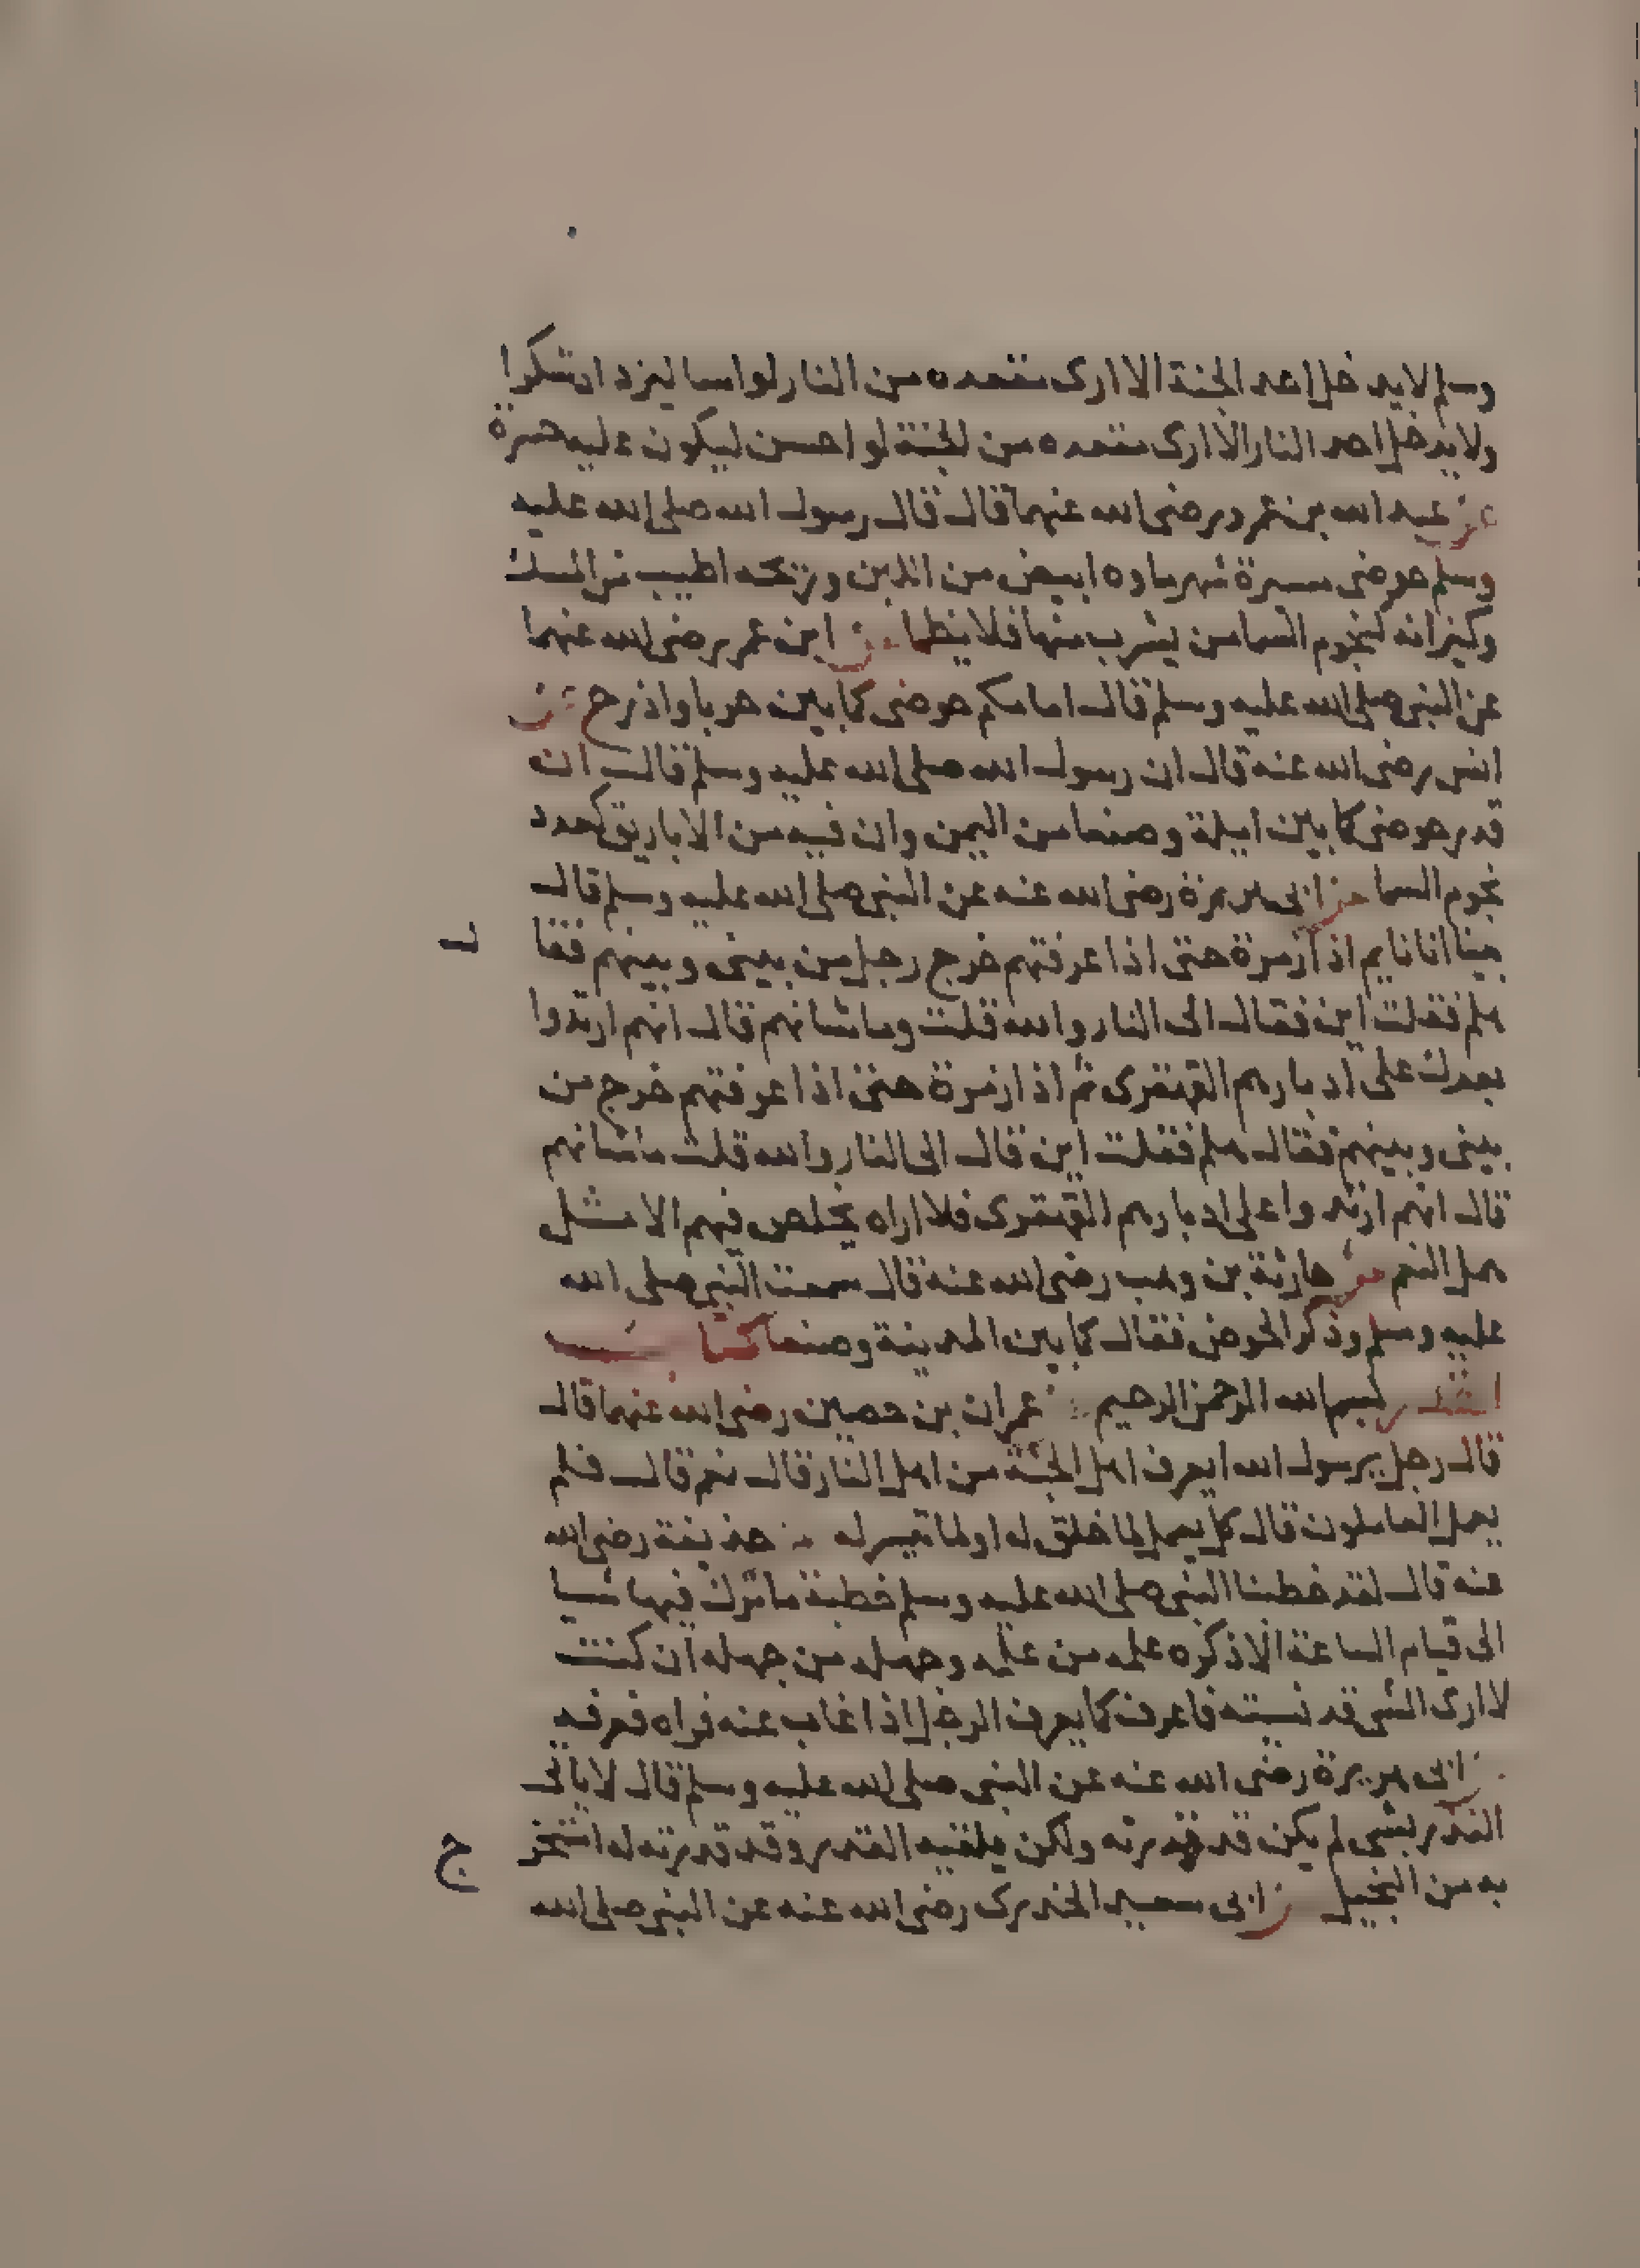 وسلم لا يدخل احد الجنة الا ارى مقعده من النار لو اسا ليزداد شكرا
ولا يدخل احد النار الا ارى مقعده من الجنة لو احسن ليكون عليه حسرة
عن عبد الله بن عمرو رضى الله عنهما قال قال رسول الله صلى الله عليه
وسلم حوضى مسيرة شهر ماوه ابيض من اللبن وريحه اطيب من المسك
وكيزانه كنجوم السما من يشرب منها فلا يظما عن ابن عمر رضى الله عنهما
عن النبى صلى الله عليه وسلم قال امامكم حوضى كما بين جربا واذرح عن
انس رضى الله عنه قال ان رسول الله صلى الله عليه وسلم قال ان
قدر حوضى كما بين ايلة وصنعا من اليمن وان فيه من الاباريق كعدد
نجوم السما عن ابى هريرة رضى الله عنه عن النبى صلى الله عليه وسلم قال
بينا انا نايم اذا زمرة حتى اذا عرفتهم خرج رجل من بينى وبينهم فقال
هلم فقلت اين فقال الى النار والله قلت وما شانهم قال انهم ارتدوا
بعدك على ادبارهم القهقرى ثم اذا زمرة حتى اذا عرفتهم خرج من
بينى وبينهم فقال هلم فقلت اين قال الى النار والله قلت ما شانهم
قال انهم ارتدوا على ادبارهم القهقرى فلا اراه يخلص فيهم الا مثل
همل النعم عن حارثة بن وهب رضى الله عنه قال سمعت النبى صلى الله
عليه وسلم وذكر الحوض فقال كما بين المدينة وصنعا كتاب
القدر بسم الله الرحمن الرحيم عن عمران بن حصين رضى الله عنهما قال
قال رجل يرسول الله ايعرف اهل الجنة من اهل النار قال نعم قال فلم
يعمل العاملون قال كل يعمل لما خلق له او لما تيسر له عن حذيفة رضى الله
عنه قال لقد خطبنا النبى صلى الله عليه وسلم خطبة ما ترك فيها شيا
الى قيام الساعة الا ذكره علمه من علمه وجهله من جهله ان كنت
لا ارى الشى قد نسيته فاعرف كما يعرف الرجل اذا غاب عنه فراه فعرفه
عن ابى هريرة رضى الله عنه عن النبى صلى الله عليه وسلم قال لا ياتى
القدر بشى لم يكن قد قدرته ولكن يلقيه القدر وقد قدرته له استخرج
به من البخيل عن ابى سعيد الخدرى رضى الله عنه عن النبى صلى الله